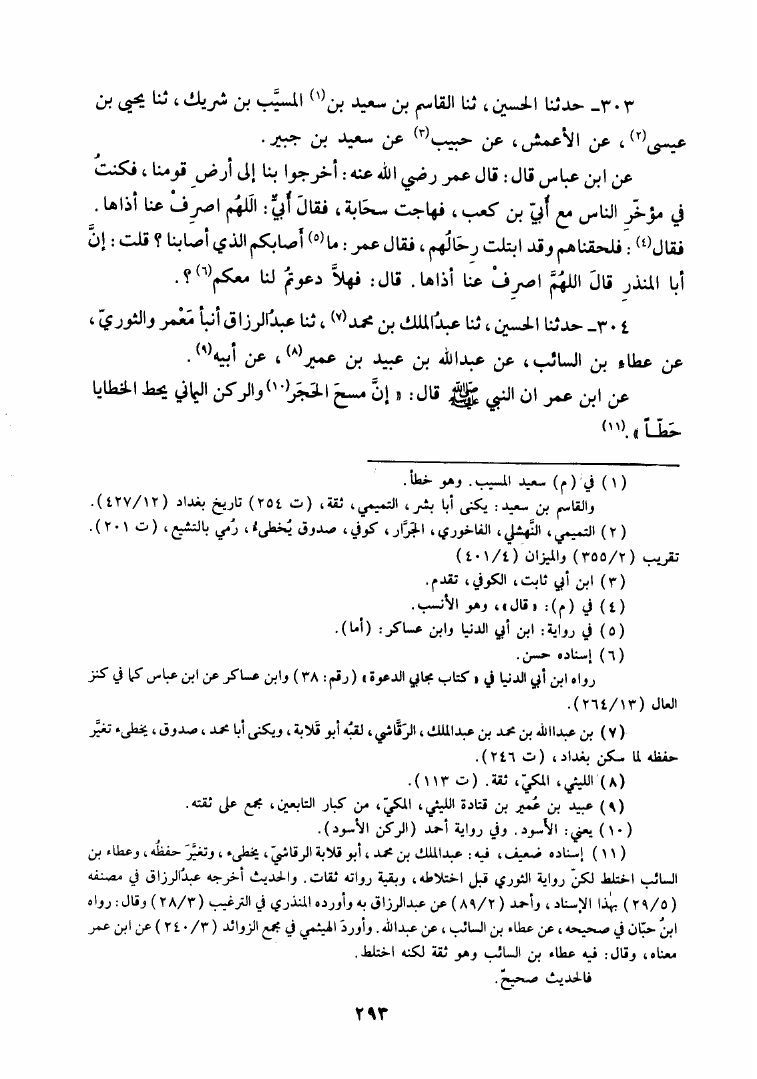 ٣٠٣ـ حدثنا الحسين، ثنا القاسم بن سعيد بن(١) المسيَّب بن شريك، ثنا يحيى بن
عيسى(٢)، عن الأعمش، عن حبيب(٣) عن سعيد بن جبير.
عن ابن عباس قال: قال عمر رضي الله عنه: أخرجوا بنا إلى أرضِ قومنا، فكنتُ
في مؤخّرِ الناس مع أُبيّ بن كعب، فهاجت سحَابة، فقالَ أُبيٌّ: اَللهُم اصرفْ عنا أذاها.
فقال(٤): فلحقناهم وقد ابتلت رِحَالُهم، فقال عمر: ما(٥) أصابكم الذي أصابنا؟ قلت: إنَّ
أبا المنذرِ قالَ اللهُمَّ اصرِفْ عنا أذاها. قال: فهلاَّ دعوتمُ لنا معكم(٦)؟.
٣٠٤ـ حدثنا الحسين، ثنا عبدُالملك بن محمد(٧)، ثنا عبدُالرزاق أنبأ مَعْمر والثوريّ،
عن عطاء بن السائب، عن عبدالله بن عبيد بن عمير(٨)، عن أبيه(٩).
عن ابن عمر ان النبي ﷺ قال: «إنَّ مسحَ الحَجَر(١٠) والركن اليماني يحط الخطايا
حَطّـاً».(١١)
(١) في (م) سعيد المسيب. وهو خطأ.
والقاسم بن سعيد: يكنى أبا بشر، التميمي، ثقة، (ت ٢٥٤) تاريخ بغداد (٤٢٧/١٢).
(٢) التميمي، النَّهشلي، الفاخوري، الجرَّار، كوفي، صدوق يُخطىءُ، رُمي بالتشيع، (ت ٢٠١).
تقريب (٣٥٥/٢) والميزان (٤٠١/٤)
(٣) ابن أبي ثابت، الكوفي، تقدم.
(٤) في (م): «قال»، وهو الأنسب.
(٥) في رواية: ابن أبي الدنيا وابن عساكر: (أما).
(٦) إسناده حسن.
رواه ابن أبي الدنيا في «كتاب مجابي الدعوة» (رقم: ٣٨) وابن عساكر عن ابن عباس كما في كنز
العال (٢٦٤/١٣).
(٧) بن عبداالله بن محمد بن عبدالملك، الرَقَّاشي، لقبُه أبو قلابة، ويكنى أبا محمد، صدوق، يخطىء تغيَّر
حفظه لما سكن بغداد، (ت ٢٤٦).
(٨) الليثي، المكيّ، ثقة. (ت ١١٣).
(٩) عبيد بن عُمير بن قتادة الليثي، المكيّ، من كبار التابعين، مجمع على ثقته.
(١٠) يعني: الأسود. وفي رواية أحمد (الركن الأسود).
(١١) إسناده ضعيف، فيه: عبدالملك بن محمد، أبو قلابة الرقاشيّ، يخطىء، وتغيَّرَ حفظُه، وعطاء بن
السائب اختلط لكنّ رواية الثوري قبل اختلاطه، وبقية رواته ثقات. والحديث أخرجه عبدُالرزاق في مصنفه
(٢٩/٥) بهٰذا الإسناد، وأحمد (٨٩/٢) عن عبدالرزاق به وأورده المنذري في الترغيب (٢٨/٣) وقال: رواه
ابنُ حبّان في صحيحه، عن عطاء بن السائب، عن عبدالله. وأوردَ الهيثمي في مجمع الزوائد (٢٤٠/٣) عن ابن عمر
معناه، وقال: فيه عطاء بن السائب وهو ثقة لكنه اختلط.
فالحديث صحيحٌ.
٢٩٣